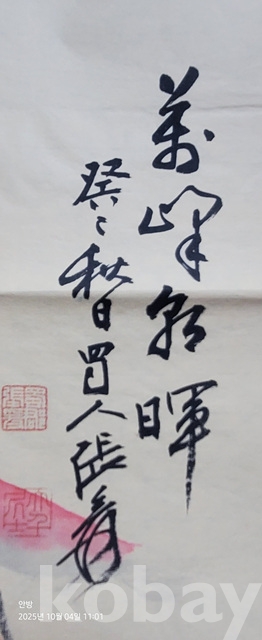 萬峰朝暉
癸秋日蜀人張爰
안방
2025년 10월 04일 11:01
kobay